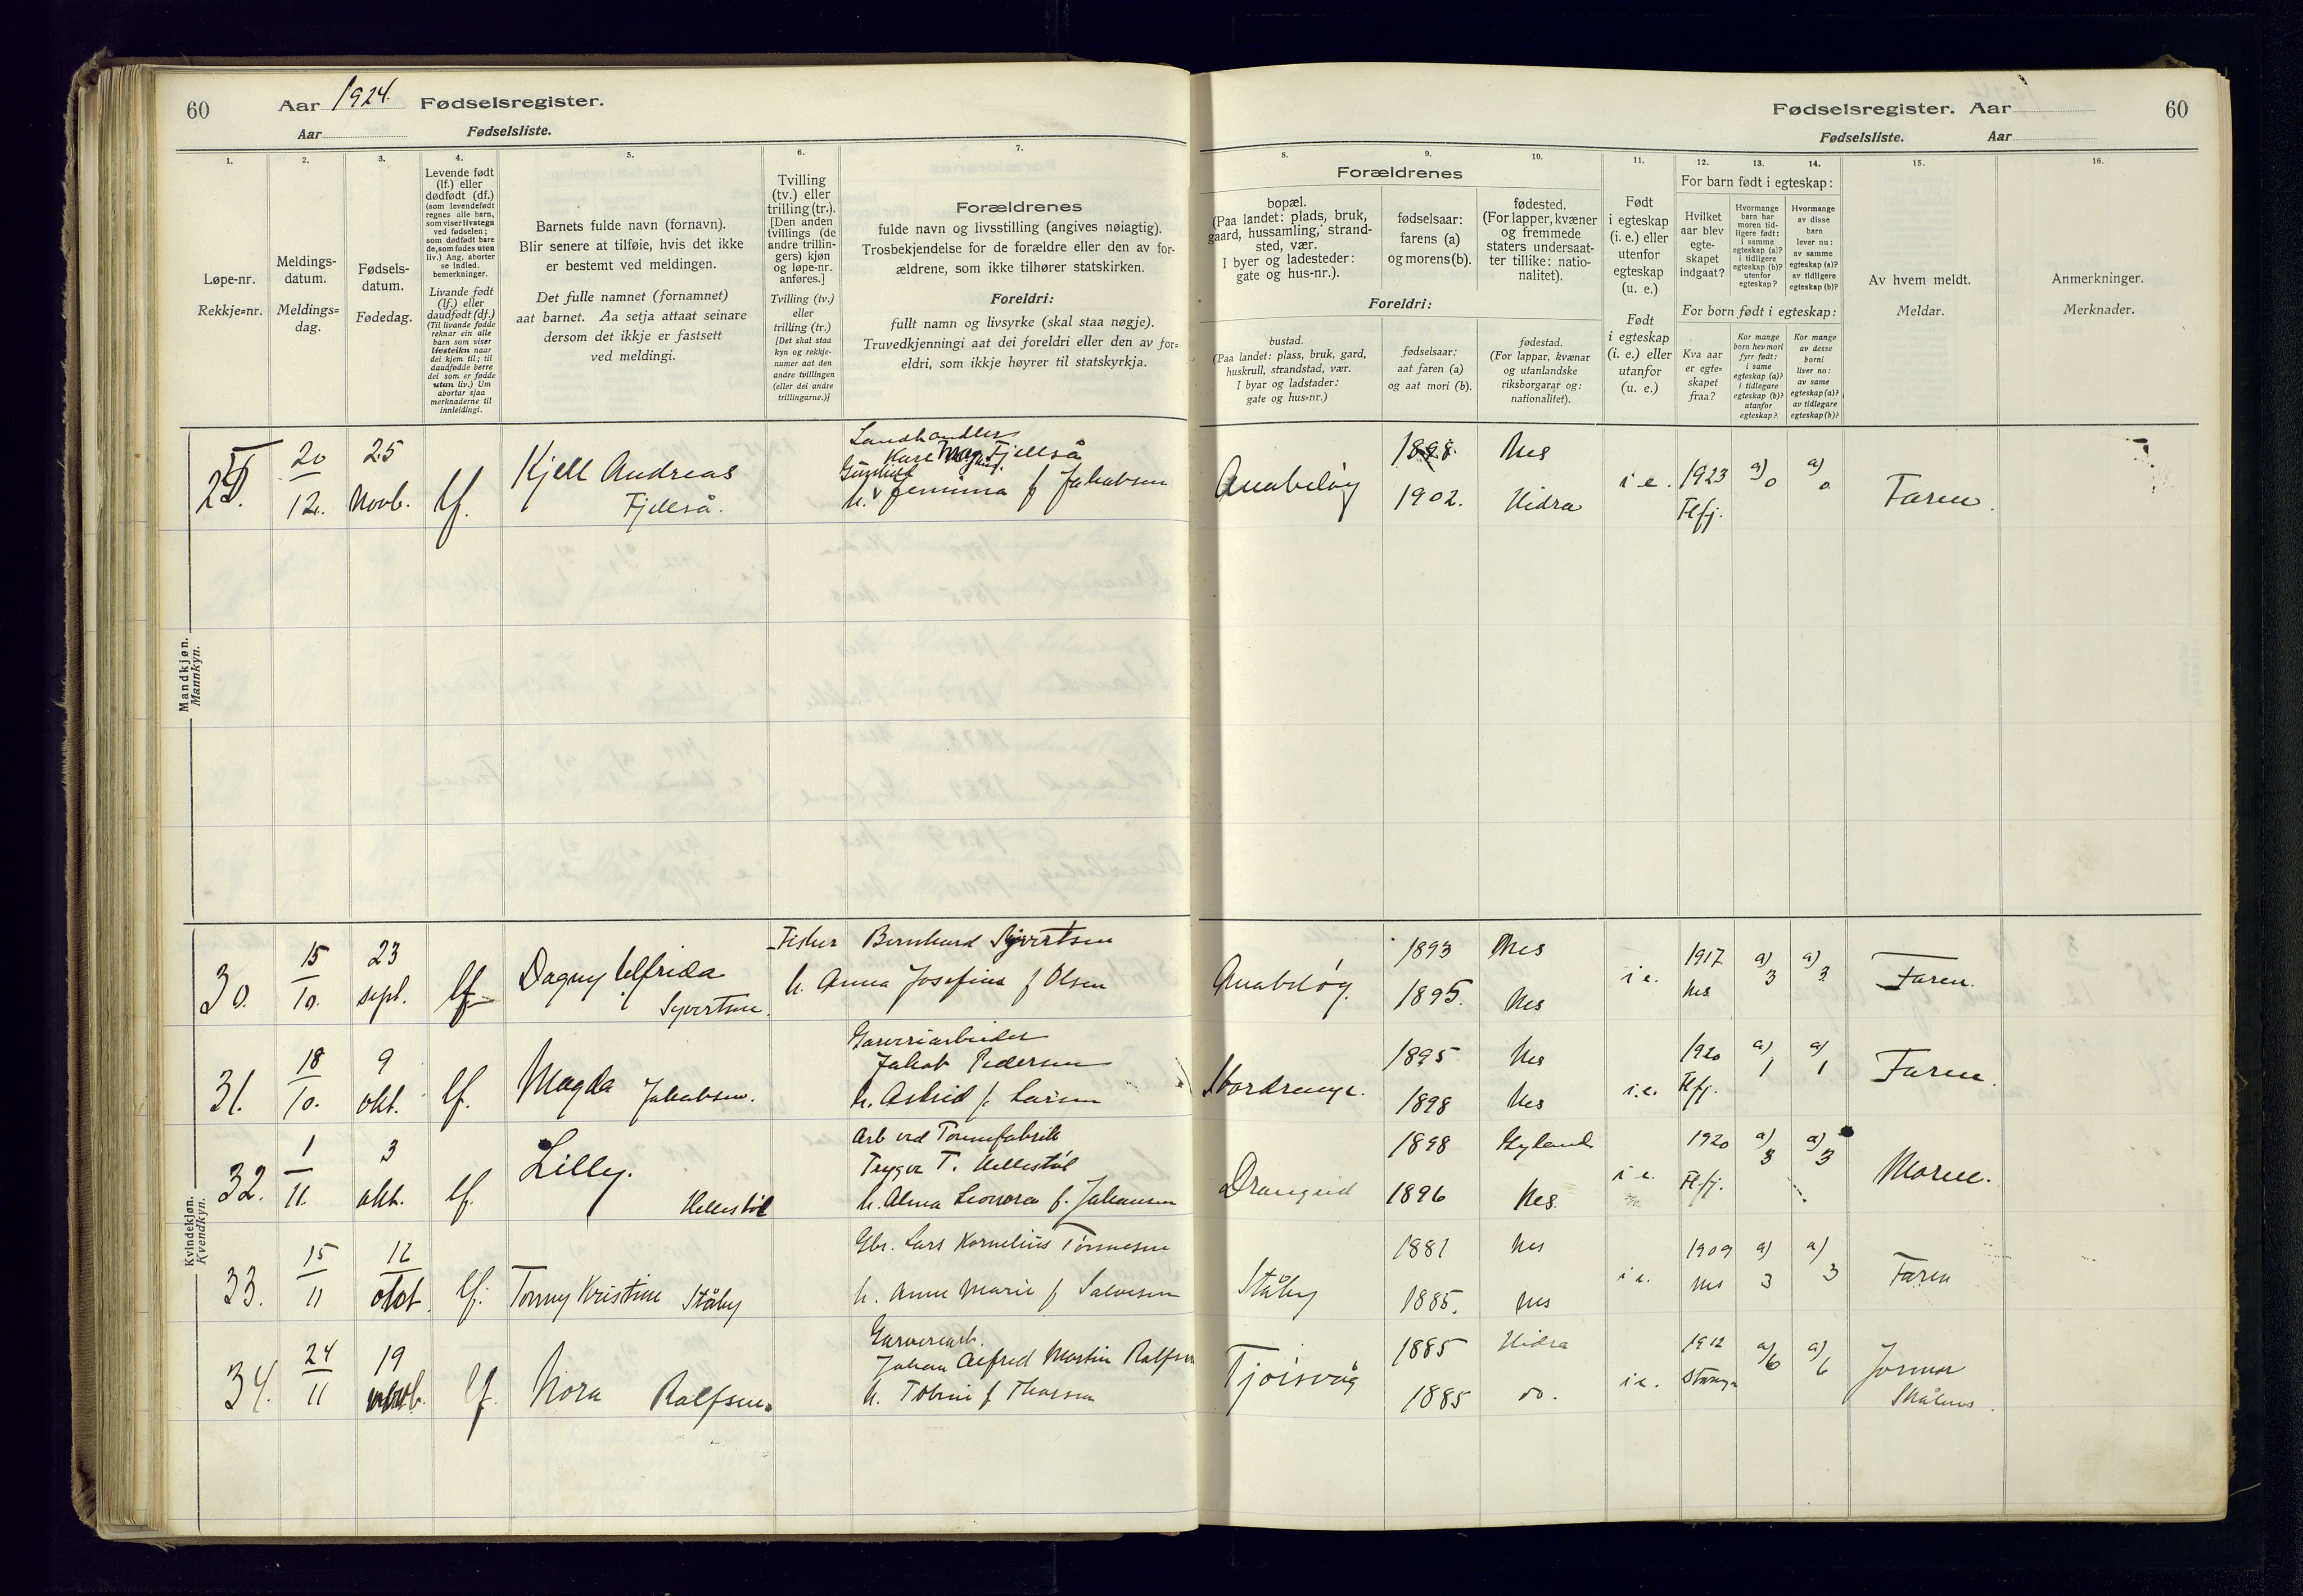 60 Aar 1924. Fødselsregister.
Aar Fødselsliste.
Fødselsregister. Aar 60
Fødselsliste. Aar
1. 2. 3. 4. 5. 6. 7.
8. 9. 10. 11. 12. 13. 14. 15. 16.
Løpe-nr.
Rekkje=nr.
Meldings-
datum.
Meldings=
dag.
Fødsels-
datum.
Fødedag.
Levende født
(lf.) eller
dødfødt (df.)
(som levendefødt
regnes alle barn,
som viser livstegn
ved fødselen;
som dødfødt bare
de, som fødes uten
liv.) Ang. aborter
se indled.
bemerkninger.
Livande født
(lf.) eller
daudfødt (df.)
(Til livande fødde
reknar ein alle
barn som viser
livsteikn naar
dei kjem til; til
daudfødde berre
dei som er fødde
utan liv.) Um
abortar sjaa
merknaderne til
innleidingi.
Barnets fulde navn (fornavn).
Blir senere at tilføie, hvis det ikke
er bestemt ved meldingen.
Det fulle namnet (fornamnet)
aat barnet. Aa setja attaat seinare
dersom det ikkje er fastsett
ved meldingi.
Tvilling
(tv.) eller
trilling (tr.).
[Den anden
tvillings (de
andre trillin-
gers) kjøn
og løpe-nr.
anføres.]
Tvilling (tv.)
eller
trilling (tr.)
[Det skal staa
kyn og rekkje-
numer aat den
andre tvillingen
(eller dei andre
trillingarne.)]
Forældrenes
fulde navn og livsstilling (angives nøiagtig).
Trosbekjendelse for de forældre eller den av for-
ældrene, som ikke tilhører statskirken.
Foreldri:
fullt namn og livsyrke (skal staa nøgje).
Truvedkjenningi aat dei foreldri eller den av for=
eldri, som ikkje høyrer til statskyrkja.
Forældrenes
bopæl.
(Paa landet: plads, bruk,
gaard, hussamling, strand-
sted, vær.
I byer og ladesteder:
gate og hus-nr.).
fødselsaar:
farens (a)
og morens (b).
fødested.
(For lapper, kvæner
og fremmede
staters undersaat-
ter tillike: natio-
nalitet).
Foreldri:
bustad.
(Paa landet: plass, bruk, gard,
huskrull, strandstad, vær.
I byar og ladstader:
gate og hus=nr.)
fødselsaar:
aat faren (a)
og aat mori (b).
fødestad.
(For lappar, kvænar
og utanlandske
riksborgarar og:
nationalitet).
Født
i egteskap
(i. e.) eller
utenfor
egteskap
(u. e.)
Født
i egteskap
(i. e.) eller
utanfor
(u. e.)
For barn født i egteskap:
Hvilket
aar blev
egte-
skapet
indgaat?
Hvormange
barn har
moren tid-
ligere født:
i samme
egteskap (a)?
i tidligere
egteskap (b)?
utenfor
egteskap?
Hvormange
av disse
barn
lever nu:
av samme
egteskap (a)?
av tidligere
egteskap (b)?
For born født i egteskap:
Kva aar
er egte=
skapet
fraa?
Kor mange
born hev mori
fyrr født:
i same
egteskap (a)?
i tidlegare
egteskap (b)?
utanfor
egteskap?
Kor mange
av desse
borni
liver no:
av same
egteskap (a)?
av tidlegare
egteskap (b)?
Av hvem meldt.
Meldar.
Anmerkninger.
Merknader.
Mandkjøn.
Mannkyn.
25. 20/12. 25 Novb. lf. Kjell Andreas
Fjellså.
Landhandler
Karl Fjellså
h. Jemima f Jakobsen
Anabeløy 1898. Nes
1902. Hidra
i e. 1923 Flfj. a) 0 a) 0 Faren.
Kvindekjøn.
Kvendkyn.
30. 15/10. 23 sept. lf Dagny Elfrida
Syvertsen.
Fisker Bernhard Syvertsen
h. Anna Josefine f Olsen
Anabeløy. 1893 Nes
1895. Nes
i e. 1917 Nes a) 3 a) 3 Faren.
31. 18/10. 9 okt. lf. Magda Jakobsen.
Garveriarbeider
Jakob Pedersen
h. Astrid f. Larsen
Stordrange. 1895 Nes
1898 Nes
i.e. 1920 Flfj. a) 1 a) 1 Faren.
32. 1/11. 3 okt. lf. Lilly.
Hellestøl
Arb ved Tønnefabrik
Trygve T. Hellestøl
h. Alma Leonora f. Johansen
Drangeid 1898 Gyland
1896 Nes.
i e. 1920 Flfj. a) 3 a) 3 Moren.
33. 15/11 12 oktob. lf. Tonny Kristine Ståby
Gbr. Lars Kornelius Tønnesen
h. Anne Marie f Salvesen
Ståby 1881 Nes
1885. Nes
i e. 1909 Nes a) 3 a) 3 Faren
34. 24/11 19 novb. lf. Nora Rolfsen.
Garveriarb.
Johan Alfred Martin Rolfsen
h. Tobine f Thorsen
Tjørsvåg 1885 Hidra
1885 do.
i e. 1912 a) 6 a) 6 Jormor